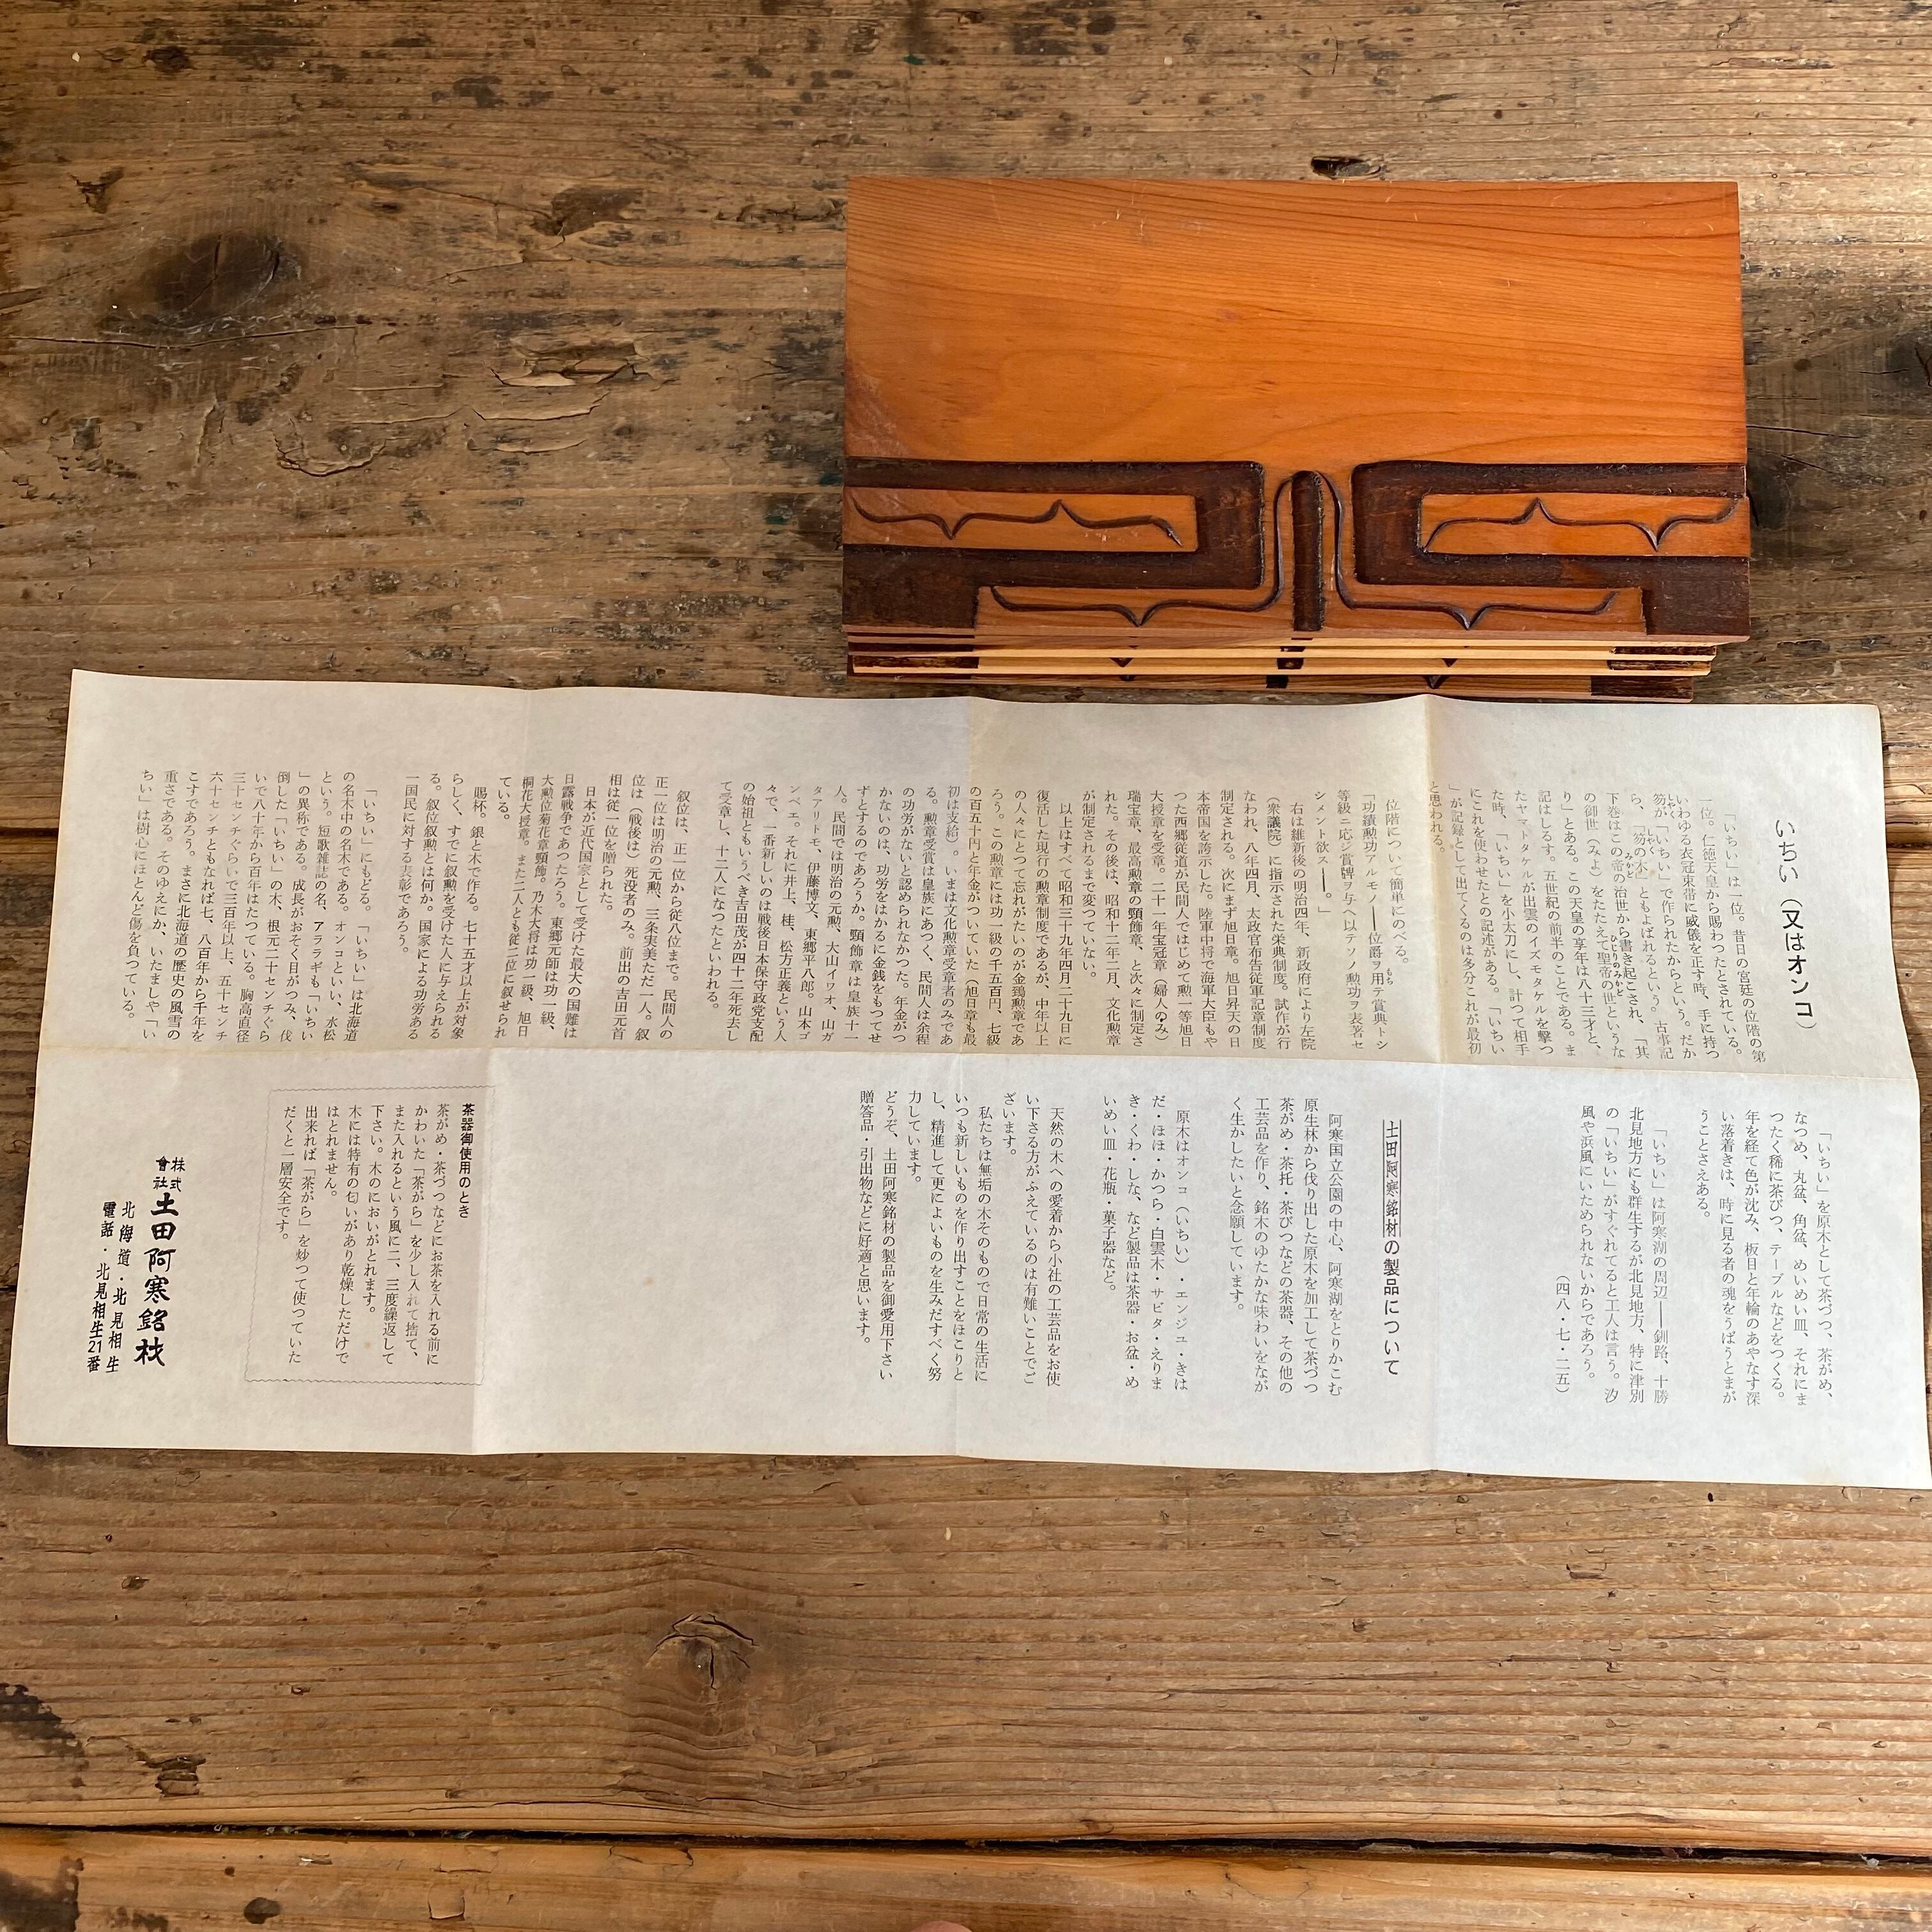 いちい（又はオンコ）
「いちい」は一位。昔日の宮廷の位階の第
一位。仁徳天皇から賜わつたとされている。
いわゆる衣冠束帯に威儀を正す時、手に持つ
笏が「いちい」で作られたからという。だか
ら、「笏の木」ともよばれるという。古事記
下巻はこの帝の治世から書き起こされ、「其
の御世（みよ）をたたえて聖帝の世というな
り」とある。この天皇の享年は八十三才と、
記はしるす。五世紀の前半のことである。ま
たヤマトタケルが出雲のイズモタケルを撃つ
た時、「いちい」を小太刀にし、計つて相手
にこれを使わせたとの記述がある。「いちい
」が記録として出てくるのは多分これが最初
と思われる。
位階について簡単にのべる。
「功績勲功アルモノ――位爵ヲ用テ賞典トシ
等級ニ応ジ賞牌ヲ与ヘ以テソノ勲功ヲ表著セ
シメント欲ス――。」
右は維新後の明治四年、新政府により左院
（衆議院）に指示された栄典制度。試作が行
なわれ、八年四月、太政官布告従軍記章制度
制定される。次にまず旭日章。旭日昇天の日
本帝国を誇示した。陸軍中将で海軍大臣もや
つた西郷従道が民間人ではじめて勲一等旭日
大授章を受章。二十一年宝冠章（婦人のみ）
瑞宝章、最高勲章の頸飾章、と次々に制定さ
れた。その後は、昭和十二年二月、文化勲章
が制定されるまで変つていない。
以上はすべて昭和三十九年四月二十九日に
復活した現行の勲章制度であるが、中年以上
の人々にとつて忘れがたいのが金鵄勲章であ
ろう。この勲章には功一級の千五百円、七級
の百五十円と年金がついていた（旭日章も最
初は支給）。いまは文化勲章受章者のみであ
る。勲章受賞は皇族にあつく、民間人は余程
の功労がないと認められなかつた。年金がつ
かないのは、功労をはかるに金銭をもつてせ
ずとするのであろうか。頸飾章は皇族十一
人。民間では明治の元勲、大山イワオ、山ガ
タアリトモ、伊藤博文、東郷平八郎。山本ゴ
ンベエ。それに井上、桂、松方正義という人
々で、一番新しいのは戦後日本保守政党支配
の始祖ともいうべき吉田茂が四十二年死去し
て受章し、十二人になつたといわれる。
叙位は、正一位から従八位まで。民間人の
正一位は明治の元勲、三条実美ただ一人。叙
位は（戦後は）死没者のみ。前出の吉田元首
相は従一位を贈られた。
日本が近代国家として受けた最大の国難は
日露戦争であつたろう。東郷元師は功一級、
大勲位菊花章頸飾。乃木大将は功一級、旭日
桐花大授章。また二人とも従二位に叙せられ
ている。
賜杯。銀と木で作る。七十五才以上が対象
らしく、すでに叙勲を受けた人に与えられる
る。叙位叙勲とは何か。国家による功労ある
一国民に対する表彰であろう。
「いちい」にもどる。「いちい」は北海道
の名木中の名木である。オンコといい、水松
という。短歌雑誌の名、アララギも「いちい
」の異称である。成長がおそく目がつみ、伐
倒した「いちい」の木、根元二十センチぐら
いで八十年から百年はたつている。胸高直径
三十センチぐらいで三百年以上、五十センチ
六十センチともなれば七、八百年から千年を
こすであろう。まさに北海道の歴史の風雪の
重さである。そのゆえにか、いたましや「い
ちい」は樹心にほとんど傷を負つている。
「いちい」を原木として茶づつ、茶がめ、
なつめ、丸盆、角盆、めいめい皿、それにま
つたく稀に茶びつ、テーブルなどをつくる。
年を経て色が沈み、板目と年輪のあやなす深
い落着きは、時に見る者の魂をうばうとまが
うことさえある。
「いちい」は阿寒湖の周辺――釧路、十勝
北見地方にも群生するが北見地方、特に津別
の「いちい」がすぐれてると工人は言う。汐
風や浜風にいためられないからであろう。
（四八・七・二五）
土田阿寒銘材の製品について
阿寒国立公園の中心、阿寒湖をとりかこむ
原生林から伐り出した原木を加工して茶づつ
茶がめ・茶托・茶びつなどの茶器、その他の
工芸品を作り、銘木のゆたかな味わいをなが
く生かしたいと念願しています。
原木はオンコ（いちい）・エンジユ・きは
だ・ほほ・かつら・白雲木・サビタ・えりま
き・くわ・しな、など製品は茶器・お盆・め
いめい皿・花瓶・菓子器など。
天然の木への愛着から小社の工芸品をお使
い下さる方がふえているのは有難いことでご
ざいます。
私たちは無垢の木そのもので日常の生活に
いつも新しいものを作り出すことをほこりと
し、精進して更によいものを生みだすべく努
力しています。
どうぞ、土田阿寒銘材の製品を御愛用下さい
贈答品・引出物などに好適と思います。
茶器御使用のとき
茶がめ・茶づつなどにお茶を入れる前に
かわいた「茶がら」を少し入れて捨て、
また入れるという風に二、三度繰返して
下さい。木のにおいがとれます。
木には特有の匂いがあり乾燥しただけで
はとれません。
出来れば「茶がら」を炒つて使つていた
だくと一層安全です。
株式會社 土田阿寒銘材
北海道・北見相生
電話・北見相生21番